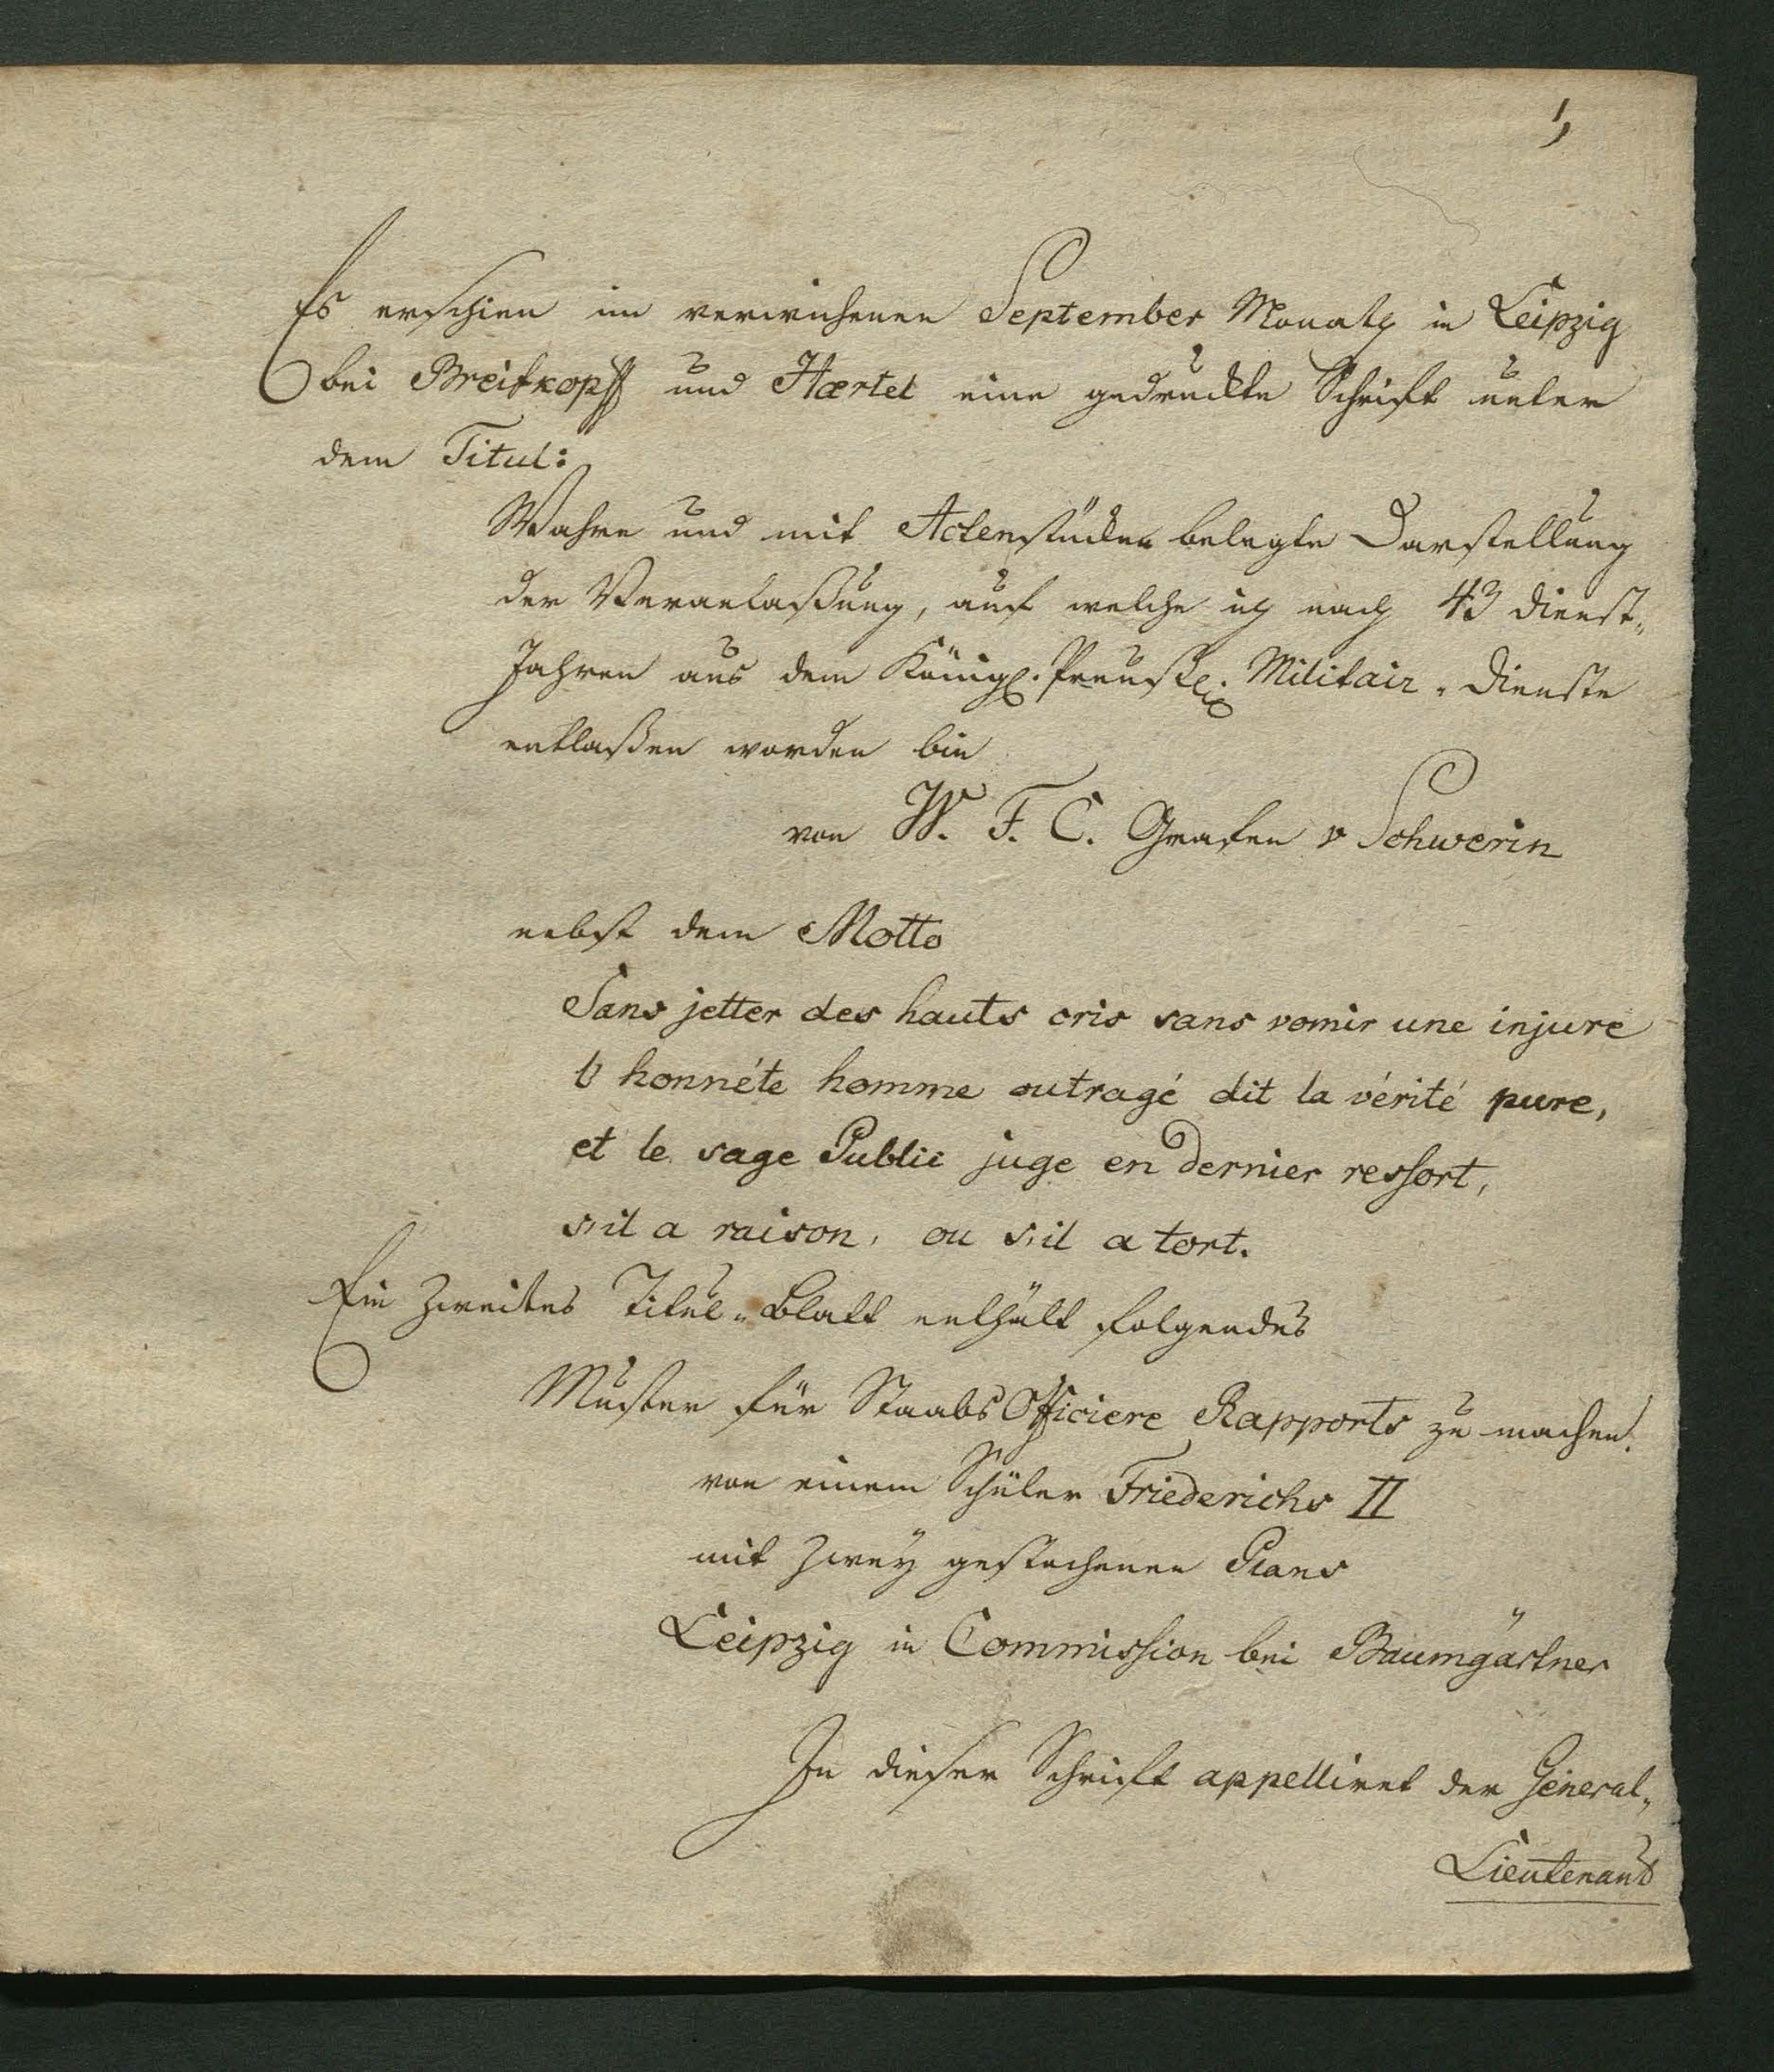 1,
Es erschien im verwichenen September Monath in Leipzig
bei Breitkopff und Hærtel eine gedruckte Schrift unter
dem Titul:
Wahre und mit Actenstücken belegte Darstellung
der Veranlaßung, auf welche ich nach 43 Dienst„
Jahren aus dem Königl. Preuß. Militair „ Dienste
entlaßen worden bin
von W. F. C. Grafen v Schwerin
nebst dem Motto
Sans jetter des hauts cris sans vomir une injure
l' honnéte homme outragé dit la vérité pure,
et le sage Public juge en dernier ressort,
s'il a raison, ou s'il a tort.
Ein zweites Titul „ Blatt enthält folgendes
Muster für Staabs Officiere Rapports zu machen.
von einem Schüler Friederichs II
mit zwey gestochenen Plans
Leipzig in Commission bei Baumgärtner
In dieser Schrift appelliret der General„
Lieutenant